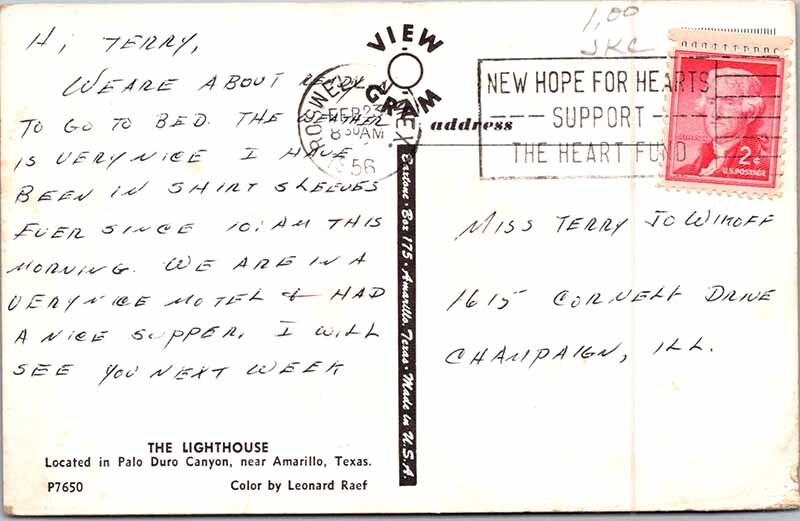 Hi, TERRY,
WE ARE ABOUT READY
TO GO TO BED. THE WEATHER
IS VERY NICE I HAVE
BEEN IN SHIRT SLEEVES
EVER SINCE 10:AM THIS
MORNING. WE ARE IN A
VERY NICE MOTEL & HAD
A NICE SUPPER. I WILL
SEE YOU NEXT WEEK
THE LIGHTHOUSE
Located in Palo Duro Canyon, near Amarillo, Texas.
P7650 Color by Leonard Raef
VIEW
GRAM
address
FEB 23
8 30 AM
56
Box 175 • Amarillo, Texas • Made in U.S.A.
1,00
JKC
NEW HOPE FOR HEARTS
SUPPORT
THE HEART FUND
JEFFERSON
2¢
U.S. POSTAGE
MISS TERRY JO
1615 CORNELL DRIVE
CHAMPAIGN, ILL.